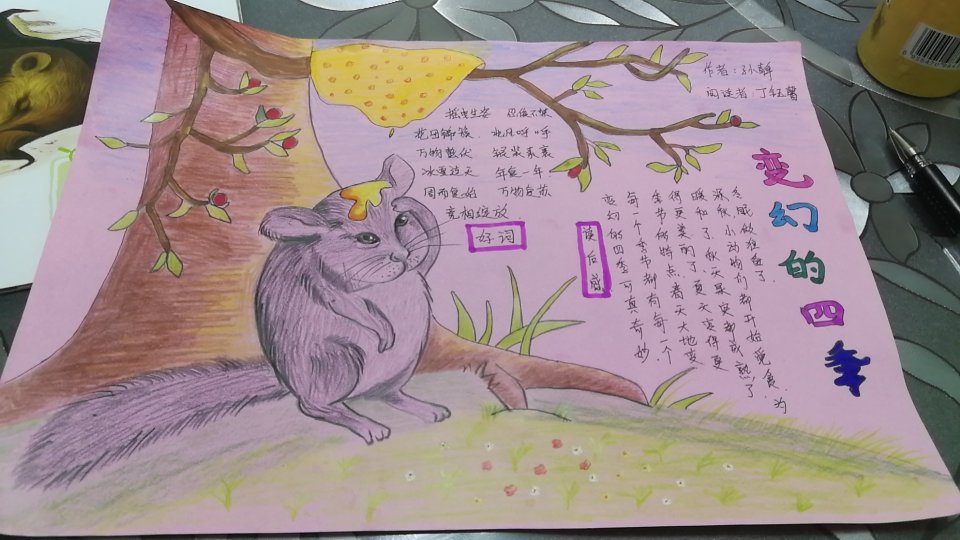 变幻的四季
作者:孙
阅读者:丁钰馨
摇曳生姿 忍俊不禁
花团锦簇 北风呼呼
万物蛰伏 银装素裹
冰雪连天 年复一年
周而复始 万物复苏
竞相绽放
好词
读后感
变幻的四季可真奇妙
每一个季节都有每一个
季节的特点。春天大地变
得更美丽了,夏天变得更
暖和了,秋天果实都成熟了.
深秋,小动物们都开始觅食,为
冬眠做准备了.